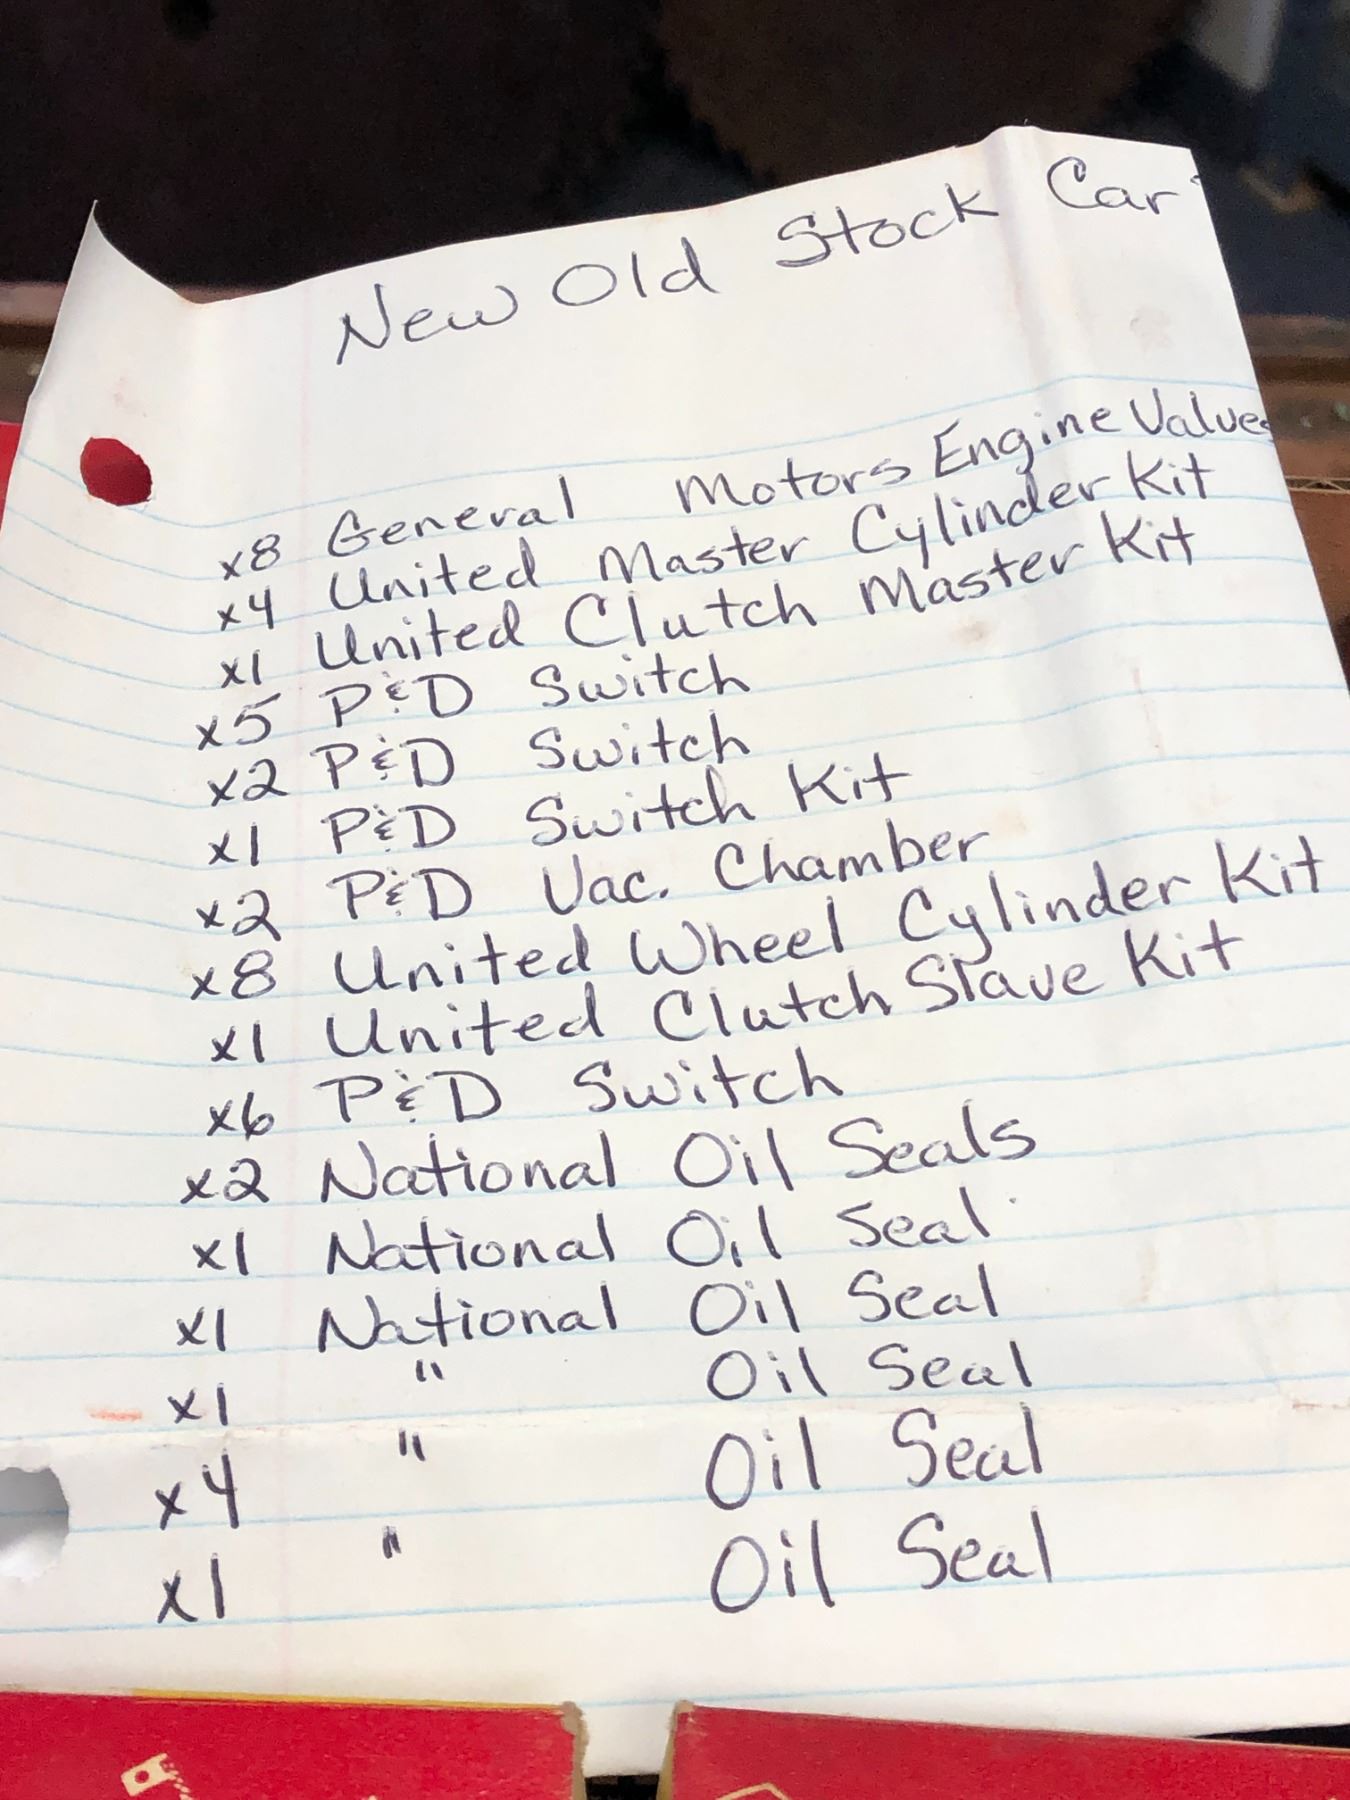 New Old Stock Car
x8 General Motors Engine Valves
x4 United Master Cylinder Kit
x1 United Clutch Master Kit
x5 P&D Switch
x2 P&D Switch
x1 P&D Switch Kit
x2 P&D Vac. Chamber
x8 United Wheel Cylinder Kit
x1 United Clutch Slave Kit
x6 P&D Switch
x2 National Oil Seals
x1 National Oil Seal
x1 National Oil Seal
x1 " Oil Seal
x4 " Oil Seal
x1 " Oil Seal